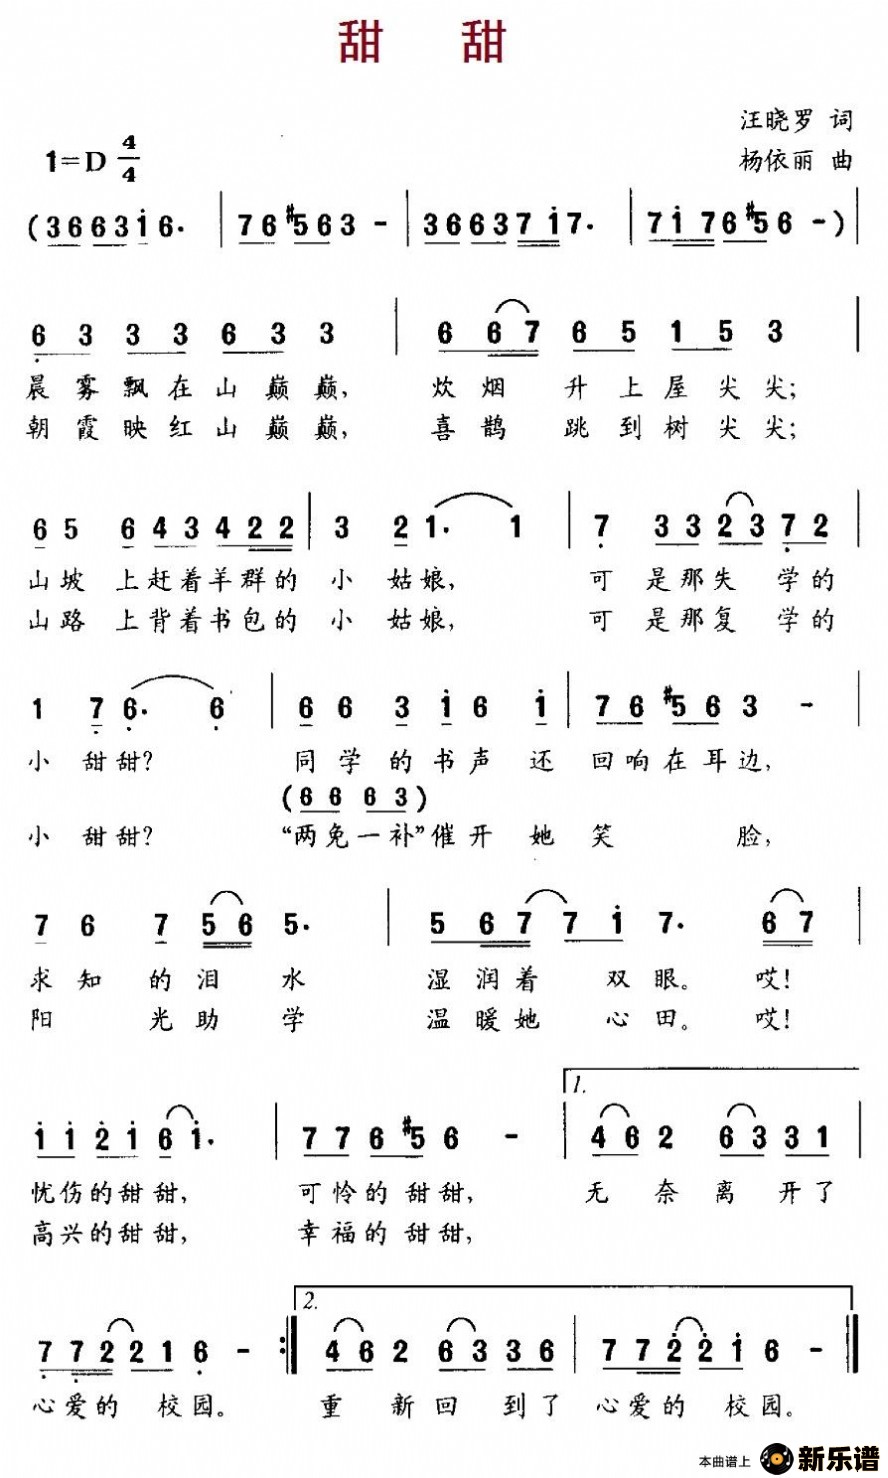 甜 甜
汪晓罗 词
1=D 4/4
杨依丽 曲
(3 6 6 3 i 6. | 7 6 #5 6 3 - | 3 6 6 3 7 i 7. | 7 i 7 6 #5 6 -) |
6 3 3 3 6 3 3 | 6 6 7 6 5 1 5 3 |
晨雾飘在山巅巅, 炊烟 升上屋尖尖;
朝霞映红山巅巅, 喜鹊 跳到树尖尖;
6 5 6 4 3 4 2 2 | 3 2 1. 1 | 7 3 3 2 3 7 2 |
山坡 上赶着羊群的 小 姑娘, 可 是那失 学的
山路 上背着书包的 小 姑娘, 可 是那复 学的
1 7 6. 6 | 6 6 3 i 6 i | 7 6 #5 6 3 - |
小 甜甜? 同学的书声 还 回响在耳边,
(6 6 6 3)
小 甜甜? “两免一补”催开 她 笑 脸,
7 6 7 5 6 5. | 5 6 7 7 i 7. 6 7 |
求知 的泪 水 湿润着 双眼。 哎!
阳 光助 学 温暖她 心田。 哎!
i i 2 i 6 i. | 7 7 6 #5 6 - | 1. 4 6 2 6 3 3 1 |
忧伤的甜甜, 可怜的甜甜, 无 奈离 开了
高兴的甜甜, 幸福的甜甜,
7 7 2 2 1 6 - :| 2. 4 6 2 6 3 3 6 | 7 7 2 2 i 6 - |
心爱的 校园。 重 新回 到了 心爱的 校园。
本曲谱上 新乐谱